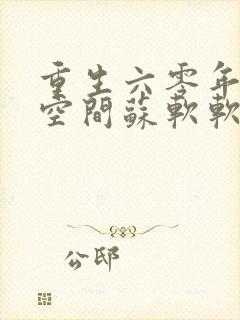 重生六零年
空間蘇軟軟
公邸